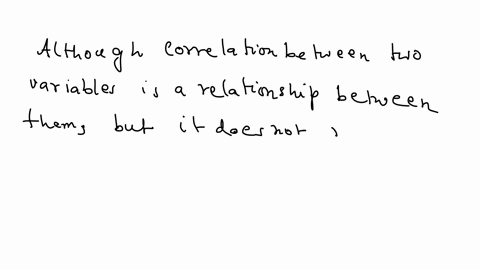 Although correlation between two
variables is a relationship between
them, but it does not